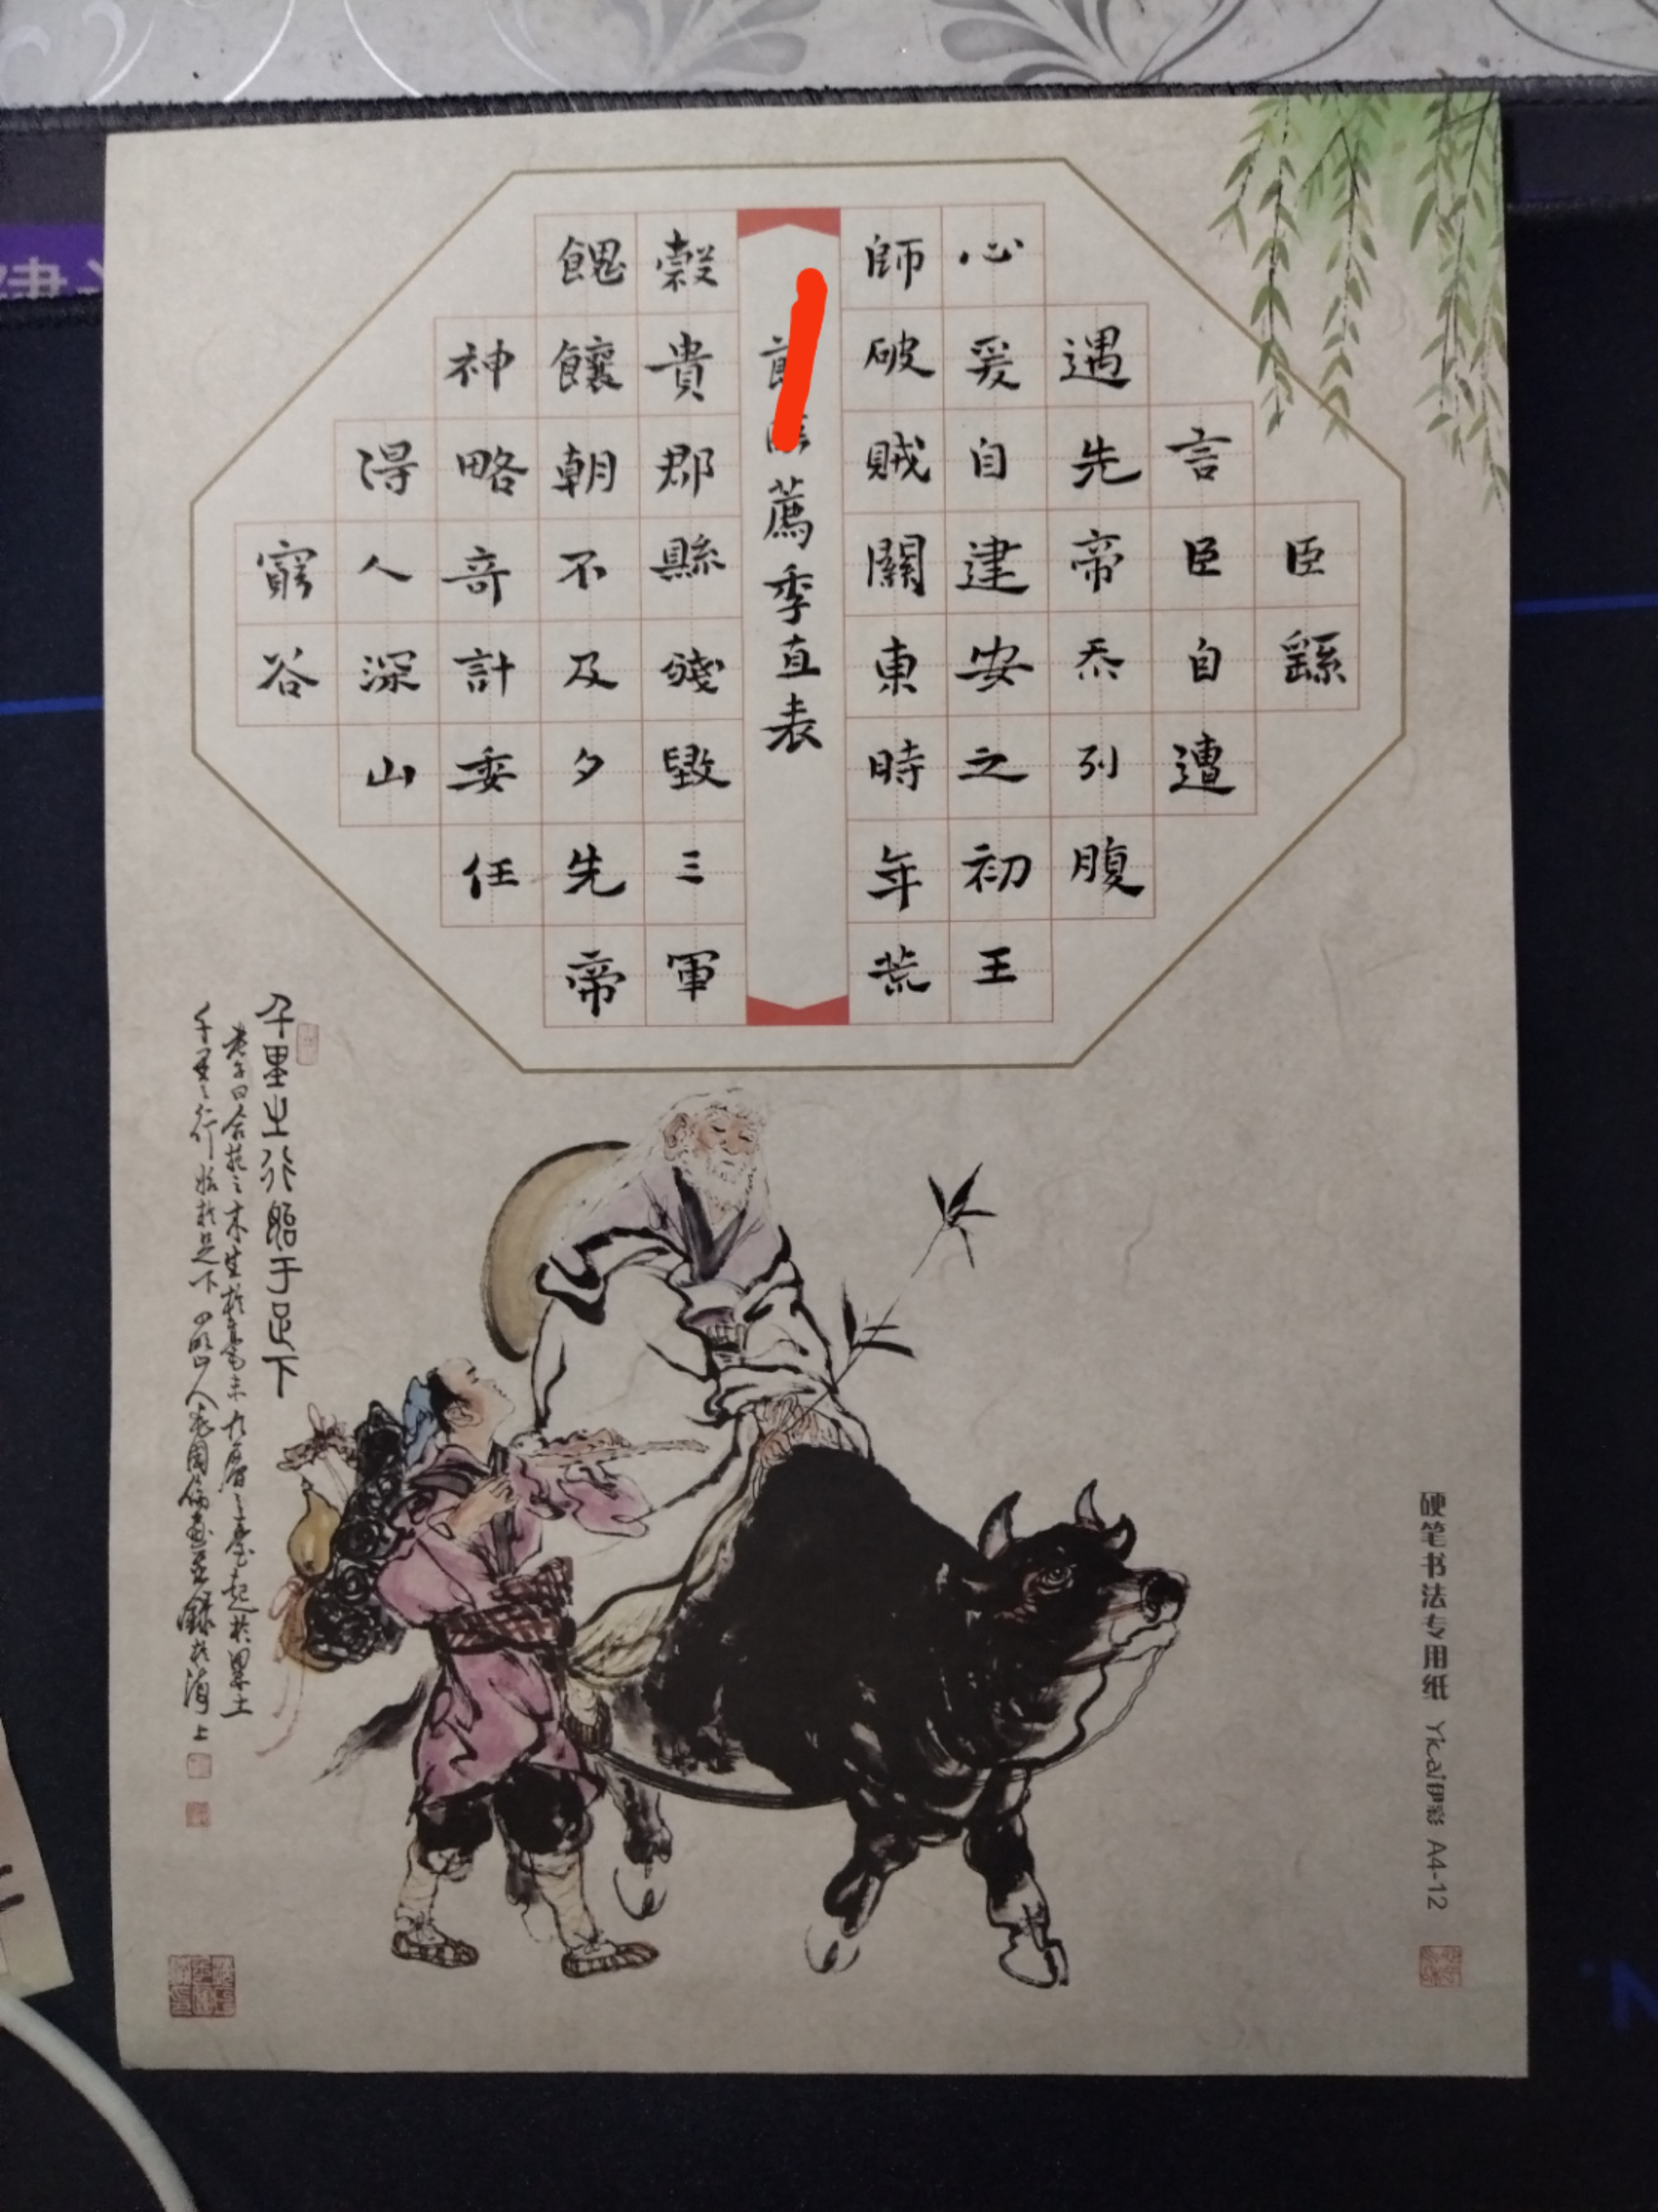 臣繇
言臣自遭
遇先帝忝列腹
心爰自建安之初王
師破賊關東時年荒
薦季直表
穀貴郡縣殘毀三軍
餽饟朝不及夕先帝
神略奇計委任
得人深山
窮谷
千里之行始于足下
老子曰合抱之木生於毫末九層之臺起於累土
千里之行始於足下
硬笔书法专用纸 Yicai伊彩 A4-12